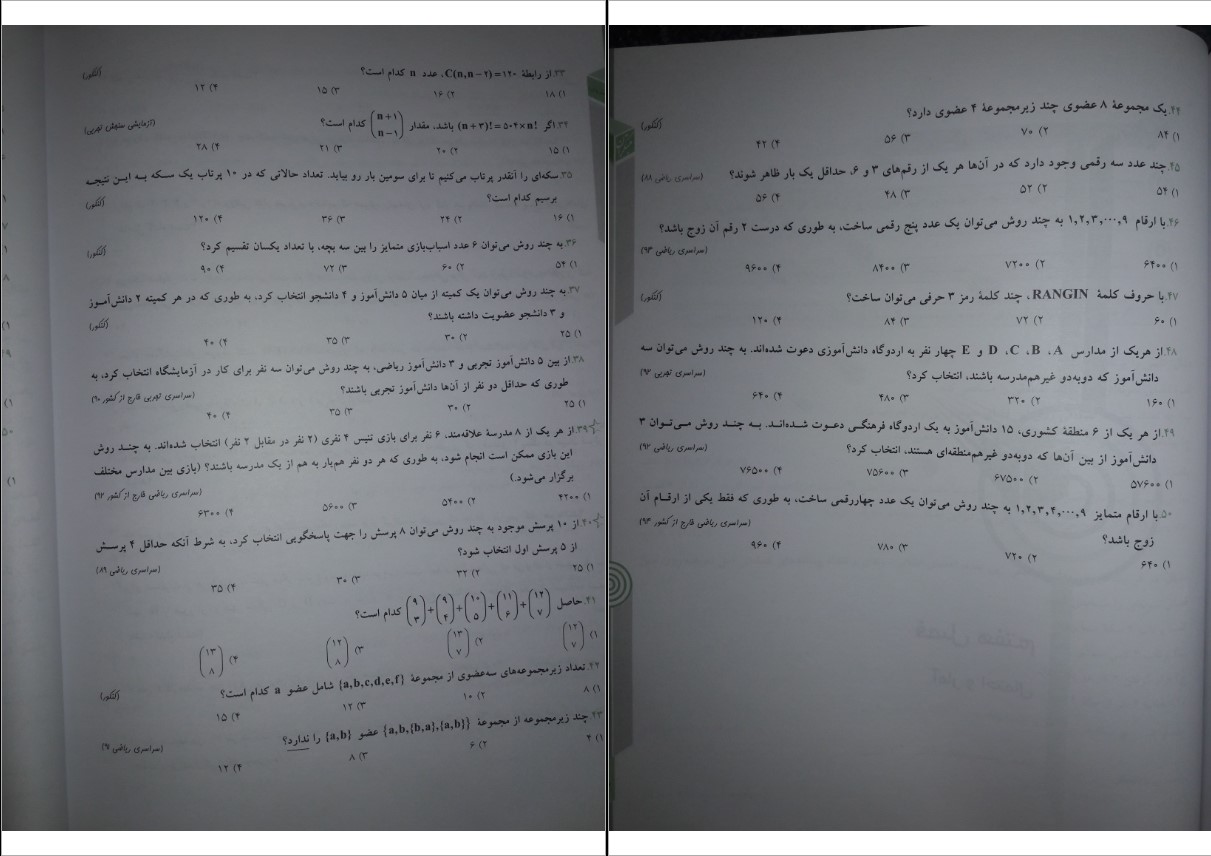 ۳۳.از رابطهٔ C(n,n−۲)=۱۲۰، عدد n کدام است؟ (کنکور)
۱) ۱۸ ۲) ۱۶ ۳) ۱۵ ۴) ۱۲
۳۴.اگر (n+۳)!=۵۰۴×n! باشد، مقدار (n+۱ n−۱) کدام است؟ (آزمایشی سنجش تجربی)
۱) ۱۵ ۲) ۲۰ ۳) ۲۱ ۴) ۲۸
۳۵.سکه‌ای را آنقدر پرتاب می‌کنیم تا برای سومین بار رو بیاید. تعداد حالاتی که در ۱۰ پرتاب یک سکه به این نتیجه
برسیم کدام است؟ (کنکور)
۱) ۱۶ ۲) ۲۴ ۳) ۳۶ ۴) ۱۲۰
۳۶.به چند روش می‌توان ۶ عدد اسباب‌بازی متمایز را بین سه بچه، با تعداد یکسان تقسیم کرد؟ (کنکور)
۱) ۵۴ ۲) ۶۰ ۳) ۷۲ ۴) ۹۰
۳۷.به چند روش می‌توان یک کمیته از میان ۵ دانش‌آموز و ۴ دانشجو انتخاب کرد، به طوری که در هر کمیته ۲ دانش‌آموز
و ۳ دانشجو عضویت داشته باشند؟ (کنکور)
۱) ۲۵ ۲) ۳۰ ۳) ۳۵ ۴) ۴۰
۳۸.از بین ۵ دانش‌آموز تجربی و ۳ دانش‌آموز ریاضی، به چند روش می‌توان سه نفر برای کار در آزمایشگاه انتخاب کرد، به
طوری که حداقل دو نفر از آن‌ها دانش‌آموز تجربی باشند؟ (سراسری تجربی خارج از کشور ۹۰)
۱) ۲۵ ۲) ۳۰ ۳) ۳۵ ۴) ۴۰
۳۹.از هر یک از ۸ مدرسهٔ علاقه‌مند، ۶ نفر برای بازی تنیس ۴ نفری (۲ نفر در مقابل ۲ نفر) انتخاب شده‌اند. به چند روش
این بازی ممکن است انجام شود، به طوری که هر دو نفر هم‌یار به هم از یک مدرسه باشند؟ (بازی بین مدارس مختلف
برگزار می‌شود.) (سراسری ریاضی خارج از کشور ۹۲)
۱) ۴۲۰۰ ۲) ۵۴۰۰ ۳) ۵۶۰۰ ۴) ۶۳۰۰
۴۰.از ۱۰ پرسش موجود به چند روش می‌توان ۸ پرسش را جهت پاسخگویی انتخاب کرد، به شرط آنکه حداقل ۴ پرسش
از ۵ پرسش اول انتخاب شود؟ (سراسری ریاضی ۸۹)
۱) ۲۵ ۲) ۳۲ ۳) ۳۰ ۴) ۳۵
۴۱.حاصل (۱۲ ۷)+(۱۱ ۶)+(۱۰ ۵)+(۹ ۴)+(۹ ۳) کدام است؟
۱) (۱۲ ۷) ۲) (۱۳ ۷) ۳) (۱۲ ۸) ۴) (۱۳ ۸)
۴۲.تعداد زیرمجموعه‌های سه‌عضوی از مجموعهٔ {a,b,c,d,e,f} شامل عضو a کدام است؟ (کنکور)
۱) ۸ ۲) ۱۰ ۳) ۱۲ ۴) ۱۵
۴۳.چند زیرمجموعه از مجموعهٔ {a,b,{b,a},{a,b}} عضو {a,b} را ندارد؟ (سراسری ریاضی ۹۱)
۱) ۴ ۲) ۶ ۳) ۸ ۴) ۱۲
۴۴.یک مجموعهٔ ۸ عضوی چند زیرمجموعهٔ ۴ عضوی دارد؟ (کنکور)
۱) ۸۴ ۲) ۷۰ ۳) ۵۶ ۴) ۴۲
۴۵.چند عدد سه رقمی وجود دارد که در آن‌ها هر یک از رقم‌های ۳ و ۶، حداقل یک بار ظاهر شوند؟ (سراسری ریاضی ۸۸)
۱) ۵۴ ۲) ۵۲ ۳) ۴۸ ۴) ۵۶
۴۶.با ارقام ۱,۲,۳,...,۹ به چند روش می‌توان یک عدد پنج رقمی ساخت، به طوری که درست ۲ رقم آن زوج باشد؟
(سراسری ریاضی ۹۳)
۱) ۶۴۰۰ ۲) ۷۲۰۰ ۳) ۸۴۰۰ ۴) ۹۶۰۰
۴۷.با حروف کلمهٔ RANGIN، چند کلمهٔ رمز ۳ حرفی می‌توان ساخت؟ (کنکور)
۱) ۶۰ ۲) ۷۲ ۳) ۸۴ ۴) ۱۲۰
۴۸.از هریک از مدارس A، B، C، D و E چهار نفر به اردوگاه دانش‌آموزی دعوت شده‌اند. به چند روش می‌توان سه
دانش‌آموز که دوبه‌دو غیرهم‌مدرسه باشند، انتخاب کرد؟ (سراسری تجربی ۹۲)
۱) ۱۶۰ ۲) ۳۲۰ ۳) ۴۸۰ ۴) ۶۴۰
۴۹.از هر یک از ۶ منطقهٔ کشوری، ۱۵ دانش‌آموز به یک اردوگاه فرهنگی دعوت شده‌اند. به چند روش می‌توان ۳
دانش‌آموز از بین آن‌ها که دوبه‌دو غیرهم‌منطقه‌ای هستند، انتخاب کرد؟ (سراسری ریاضی ۹۲)
۱) ۵۷۶۰۰ ۲) ۶۷۵۰۰ ۳) ۷۵۶۰۰ ۴) ۷۶۵۰۰
۵۰.با ارقام متمایز ۱,۲,۳,۴,...,۹ به چند روش می‌توان یک عدد چهاررقمی ساخت، به طوری که فقط یکی از ارقام آن
زوج باشد؟ (سراسری ریاضی خارج از کشور ۹۳)
۱) ۶۴۰ ۲) ۷۲۰ ۳) ۷۸۰ ۴) ۹۶۰